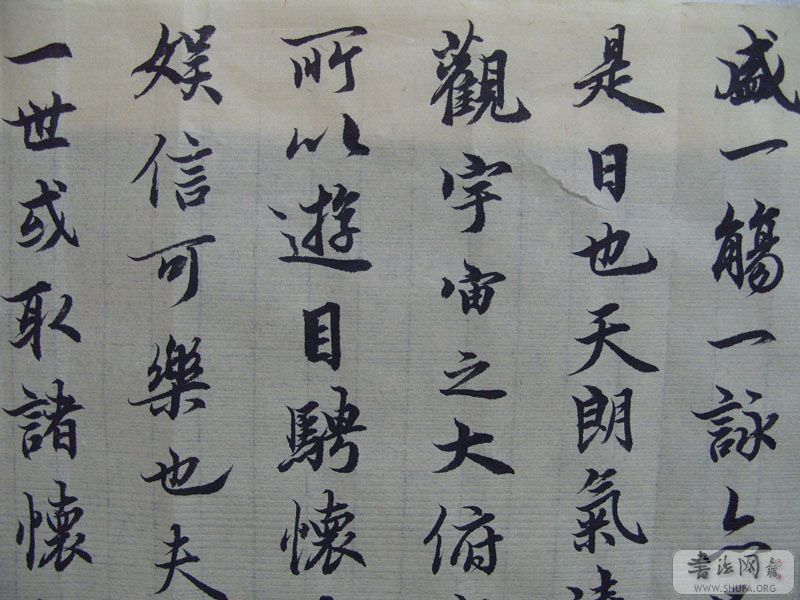 盛一觴一詠亦
是日也天朗氣清
觀宇宙之大俯
所以遊目騁懷
娛信可樂也夫
一世或取諸懷
書法网
WWW.SHUFA.ORG